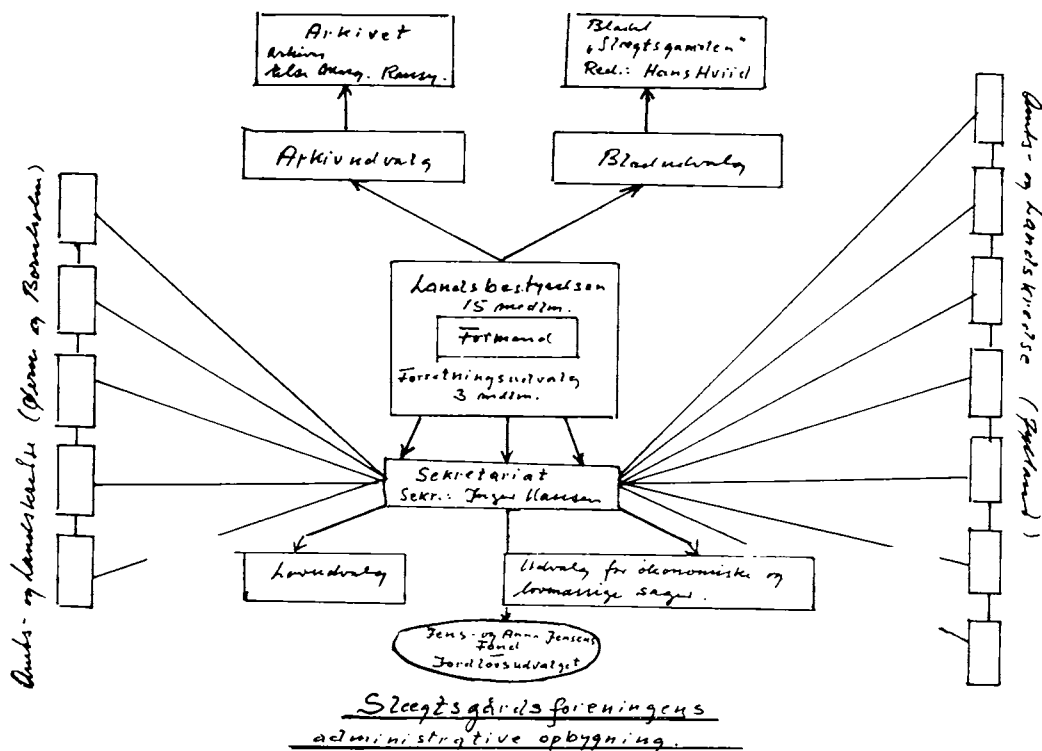 Arkivet
Arkivar
Else
Bladet
„Slægtsgaarden“
Red.: Hans Hviid
Arkivudvalg
Bladudvalg
Landsbestyrelsen
15 medlm.
Formand
Forretningsudvalg
3 medlm.
Sekretariat
Sekr.: Inger Hansen
Lovudvalg
Udvalg for økonomiske og
lovmæssige sager.
Jens- og Anna Jensens
Fond
Jordlovsudvalget
Amts- og Landskredse (Øerne og Bornholm)
Amts- og Landskredse (Jylland)
Slægtsgårdsforeningens
administrative opbygning.